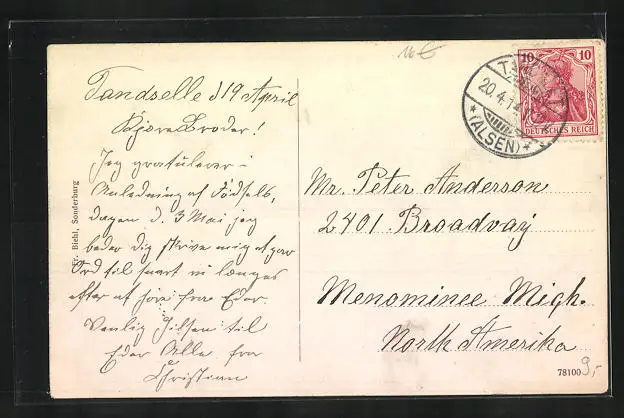 Tandselle d 19 April
Kjære Broder!
Jeg gratulerer i
Anledning af Födsels,
dagen d. 3 Mai jeg
beder dig skrive mig et par
Ord til snart vi længes
efter at höre fra Eder.
Venlig Hilsen til
Eder Alle fra
Christian
Fr. Biehl, Sonderburg
10 €
20.4.1
*(ALSEN)*
10 10
DEUTSCHES REICH
Mr. Peter Anderson
2401 Broadvay
Menominee Migh.
North Amerika
78100
9,-